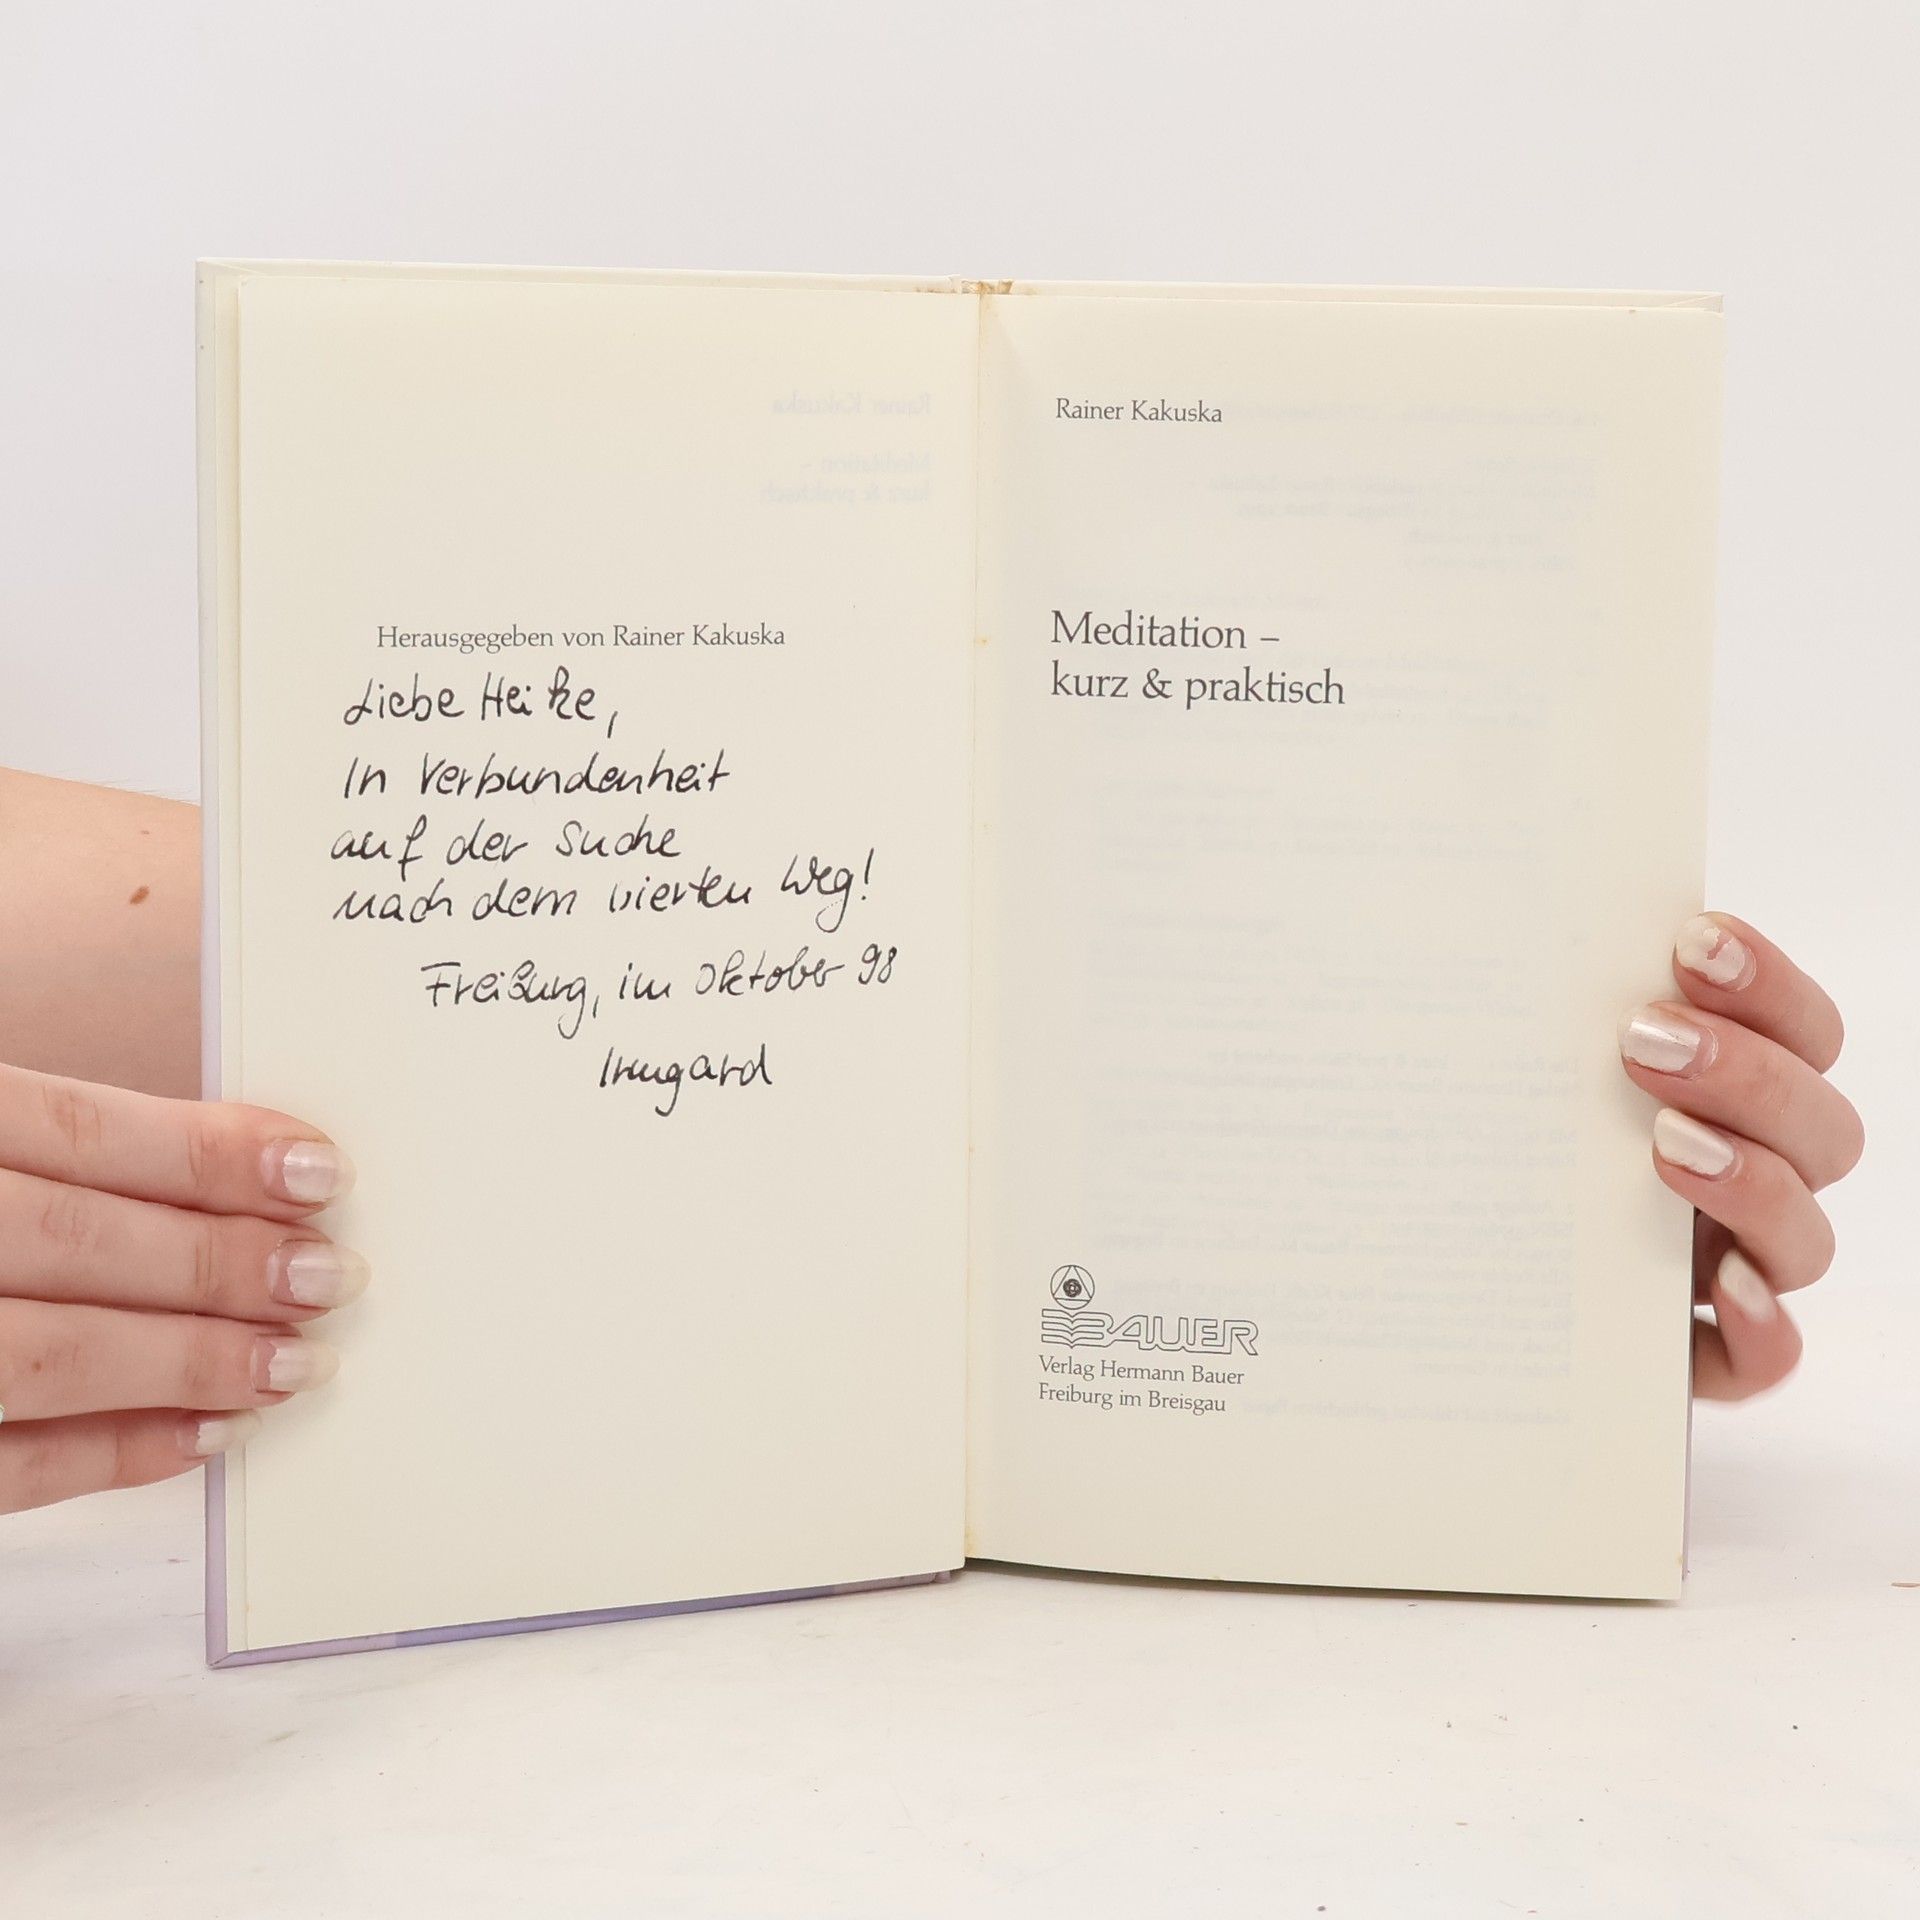 Herausgegeben von Rainer Kakuska
Liebe Heike,
In Verbundenheit
auf der Suche
nach dem vierten Weg!
Freiburg, im Oktober 98
Irmgard
Rainer Kakuska
Meditation –
kurz & praktisch
BAUER
Verlag Hermann Bauer
Freiburg im Breisgau